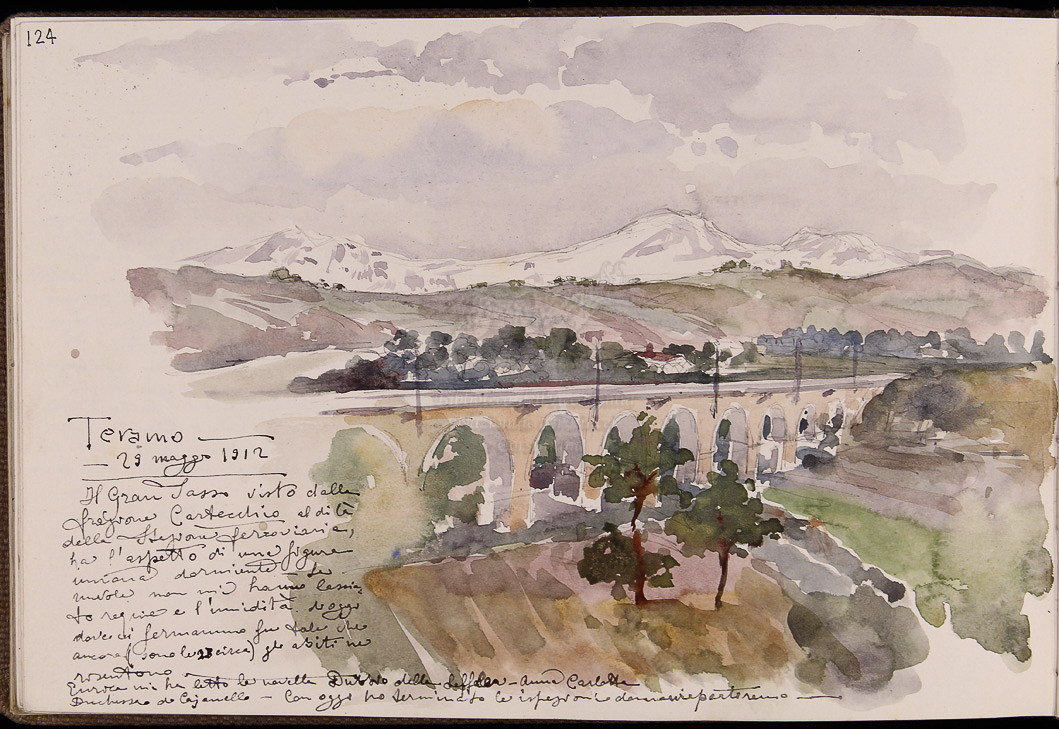 124
Teramo
29 maggio 1912
Il Gran Sasso visto dalla
frazione Cartecchio al di là
della Stazione ferroviaria,
ha l'aspetto di una figura
umana dormiente. Le
nuvole non mi hanno lascia
to requie e l'umidità
dove ci fermammo fu tale che
ancora (sono le 23 circa) gli abiti ne
risentono
mi ha letto le novelle della Leffler - Anna Carlotta
Duchessa di Cajanello - Con oggi ho terminato le ispezioni e domani ripartiremo